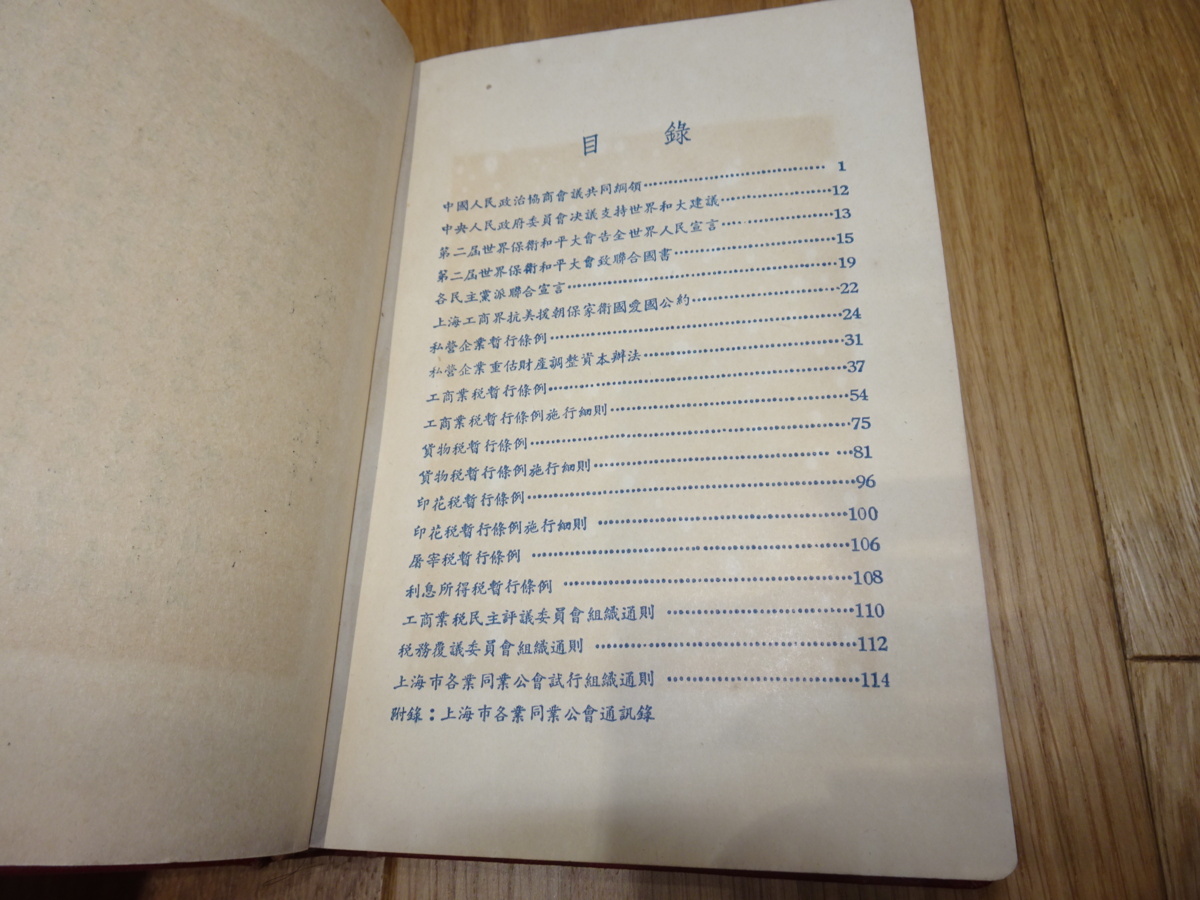 目錄
中國人民政治協商會議共同綱領 1
中央人民政府委員會决議支持世界和大建議 12
第二屆世界保衛和平大會告全世界人民宣言 13
第二屆世界保衛和平大會致聯合國書 15
各民主黨派聯合宣言 19
上海工商界抗美援朝保家衛國愛國公約 22
私營企業暫行條例 24
私營企業重估財產調整資本辦法 31
工商業税暫行條例 37
工商業税暫行條例施行細則 54
貨物税暫行條例 75
貨物税暫行條例施行細則 81
印花税暫行條例 96
印花税暫行條例施行細則 100
屠宰税暫行條例 106
利息所得税暫行條例 108
工商業税民主評議委員會組織通則 110
税務覆議委員會組織通則 112
上海市各業同業公會試行組織通則 114
附錄：上海市各業同業公會通訊錄